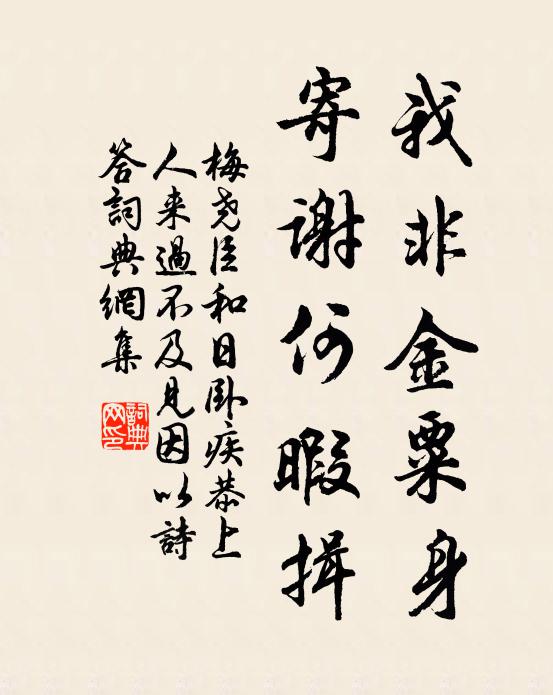 我非金粟身
寄謝何暇揖
梅堯臣和日卧疾恭上
人来過不及見因以詩
答詞典網集
詞典
网印